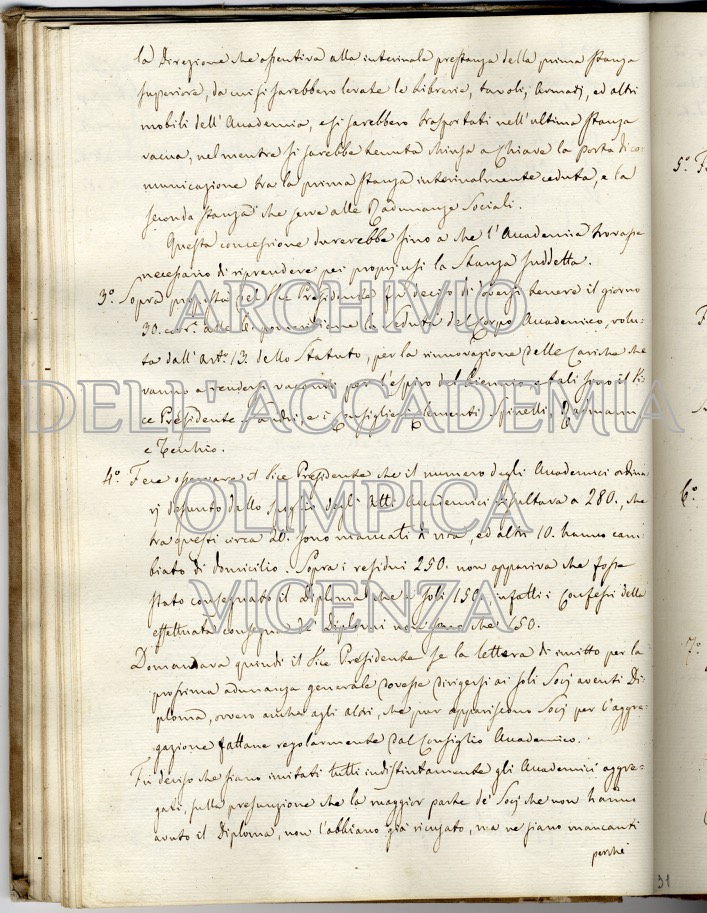 la Direzione che assentiva alla interinale prestanza della prima stanza
superiore, da cui si sarebbero levate le Librerie, tavoli, Armadj, ed altri
mobili dell'Accademia, e si sarebbero trasportati nell'ultima stanza
vacua, nel mentre si sarebbe tenuta chiusa a chiave la porta di co=
municazione tra la prima stanza interinalmente ceduta, e la
seconda stanza che serve alle Radunanze Sociali.
Questa concessione durerebbe sino a che l'Accademia trovasse
necessario di riprendere pei proprj usi la Stanza suddetta.
3.° Sopra proposta del Vice Presidente fu deciso di doversi tenere il giorno
30. corr.e alle pomeridiane la Seduta del Corpo Accademico, volu=
ta dall'Art.° 13. dello Statuto, per la rinnovazione delle Cariche che
vanno a rendersi vacanti per l'espiro del Biennio, e tali sono il Vi=
ce Presidente, e i Consiglieri Clementi, Spinelli,
e Tecchio.
4.° Fece osservare il Vice Presidente che il numero degli Accademici ordina=
rj desunto dallo spoglio degli Atti Accademici risultava a 280., che
tra questi circa 20. sono mancati di vita, ed altri 10. hanno cam=
biato di domicilio. Sopra i residui 250. non appariva che fosse
stato consegnato il diploma che a soli 150, infatti i Confessi della
effettuata consegna de' diplomi non sono che 150.
Domandava quindi il Vice Presidente se la lettera di invito per la
prossima adunanza generale dovesse dirigersi ai soli Socj aventi Di=
ploma, ovvero anche agli altri, che pur appariscono Socj per l'aggre=
gazione fattane regolarmente dal Consiglio Accademico.
Fu deciso che siano invitati tutti indistintamente gli Accademici aggre=
gati, sulla presunzione che la maggior parte de' Socj che non hanno
avuto il Diploma, non l'abbiano già ricusato, ma ne siano mancanti
perchè
5.° F
6.°
7.°
31
ARCHIVIO
DELL'ACCADEMIA
OLIMPICA
VICENZA